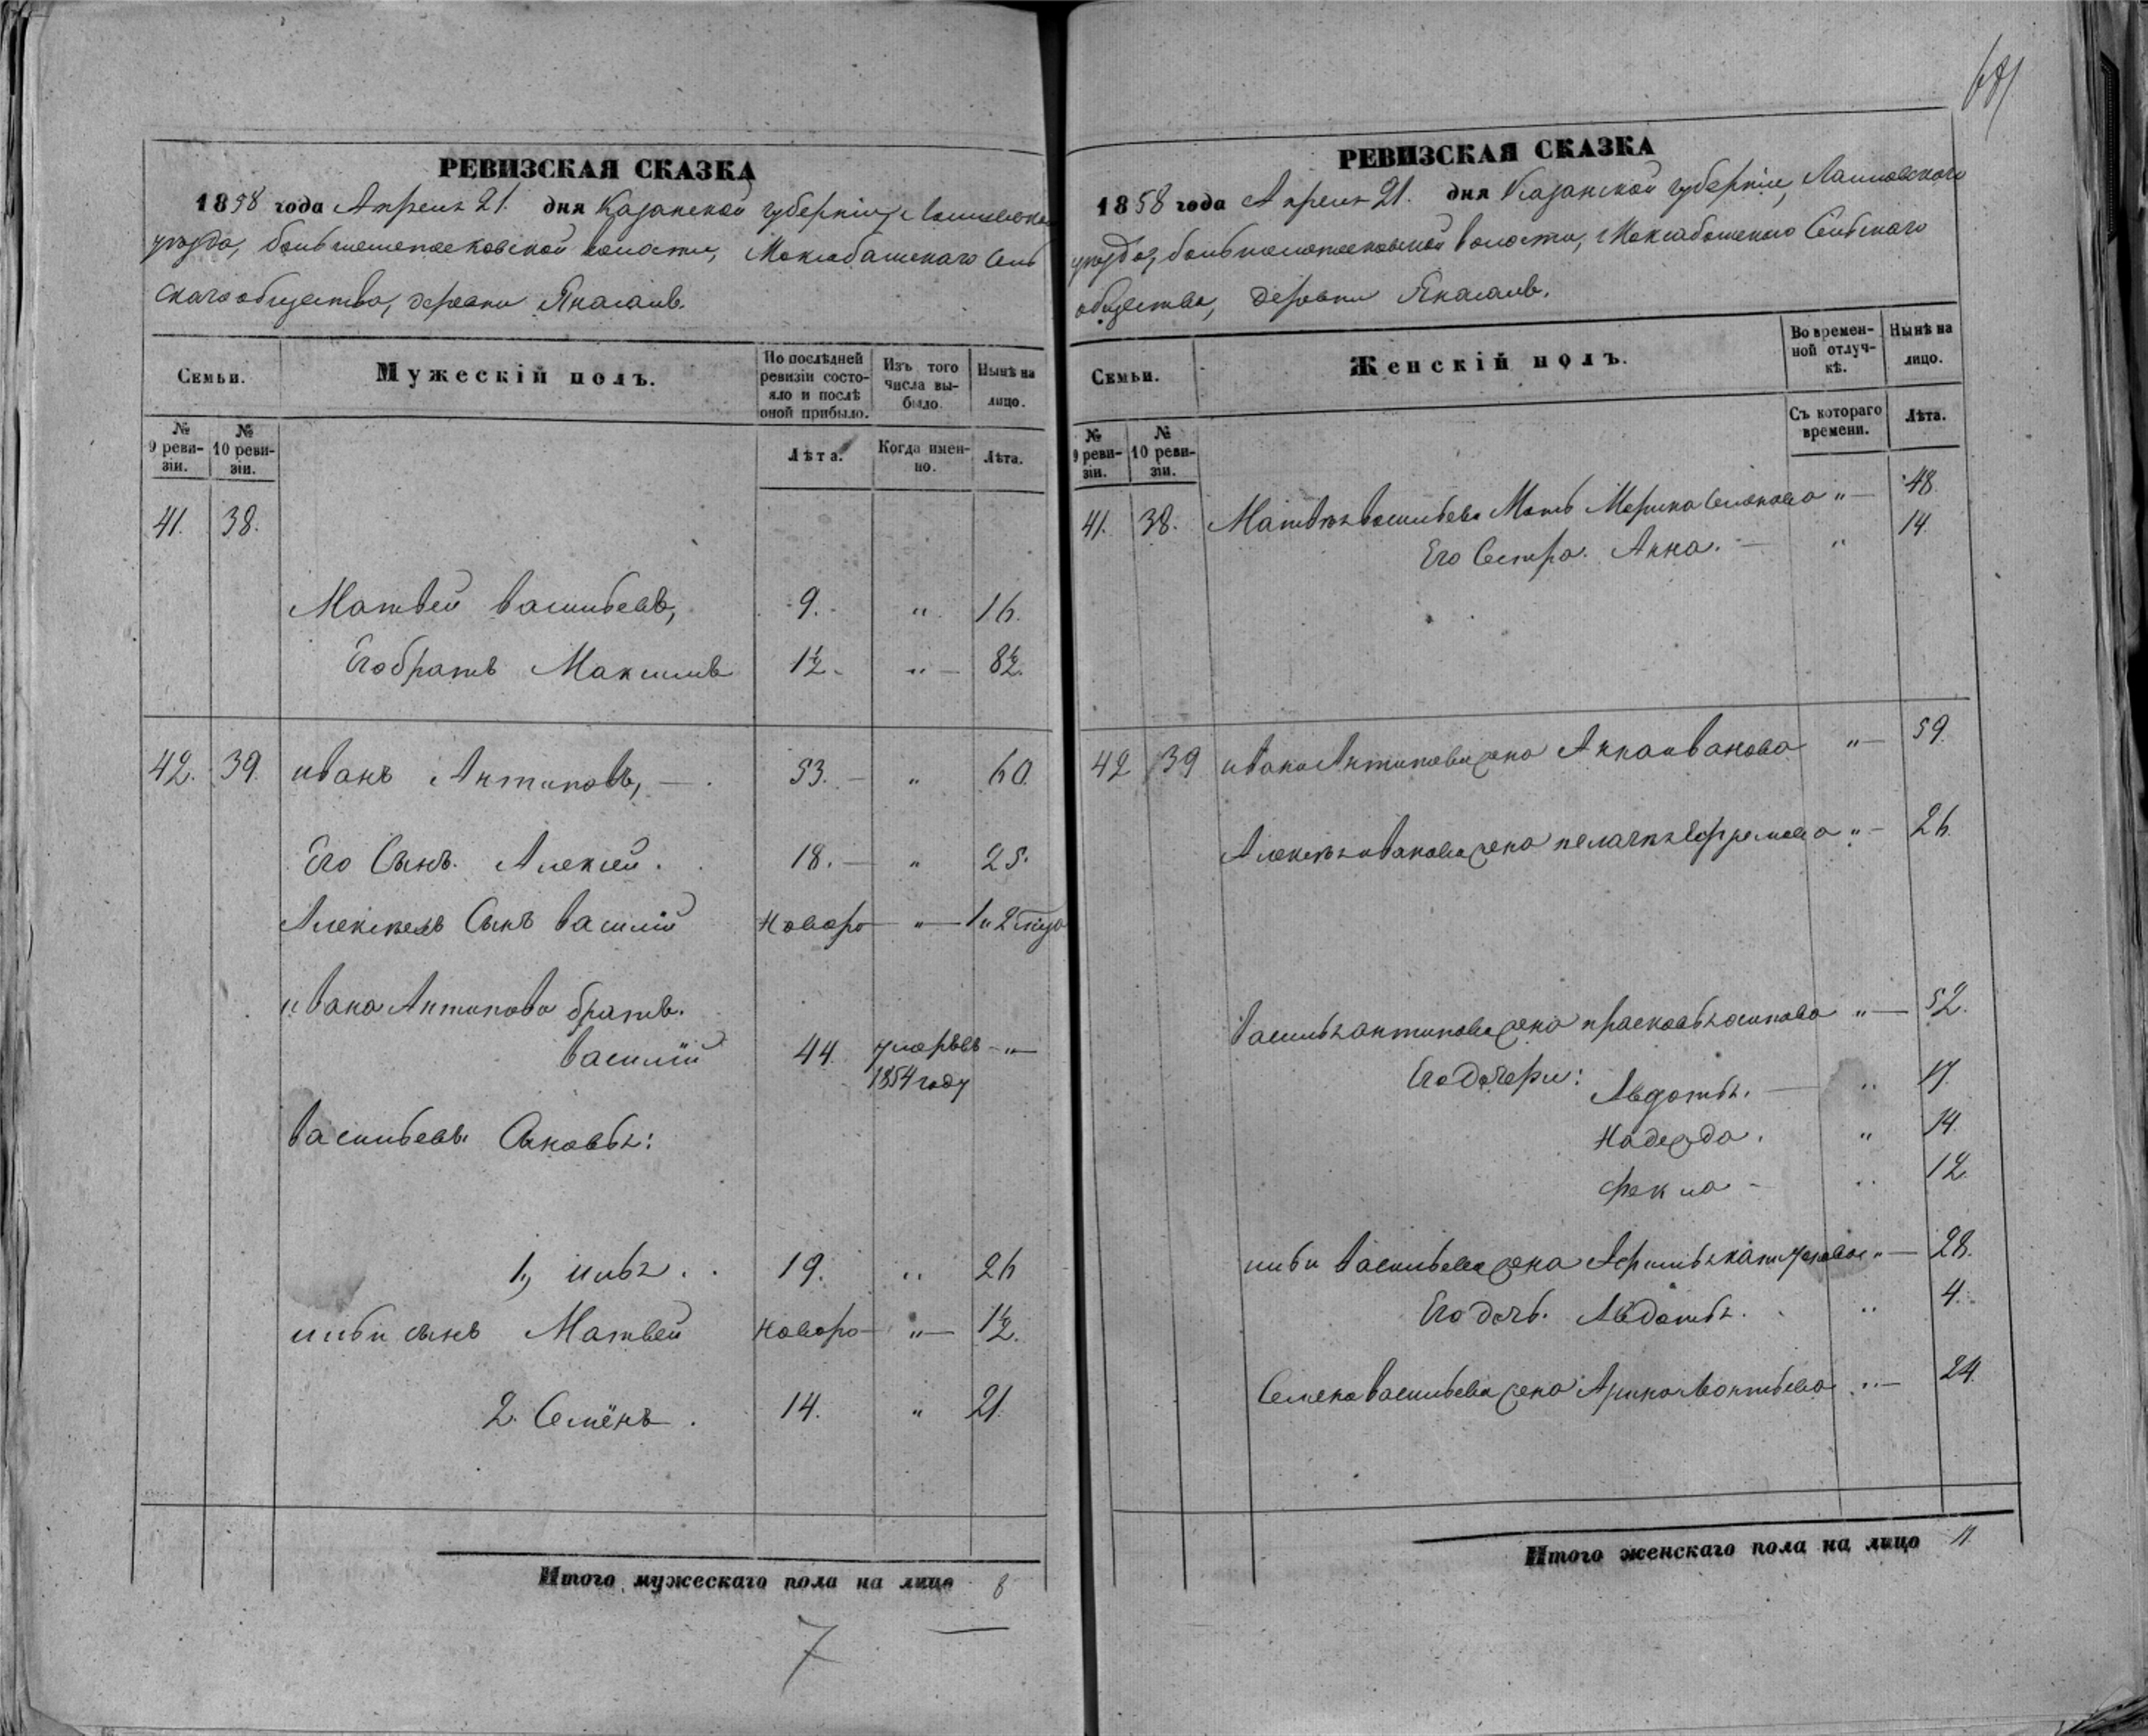 РЕВИЗСКАЯ СКАЗКА
1858 года Апреля 21. дня Казанской губернии, Лаишевска
уезда, волости,
скаго общества, деревни
Семьи.
Мужескій полъ.
По послѣдней ревизіи состояло и послѣ оной прибыло.
Изъ того числа выбыло.
Нынѣ на лицо.
№ 9 ревизіи.
№ 10 ревизіи.
Лѣта.
Когда именно.
Лѣта.
41. 38.
Матвей Васильевъ, 9. " 16.
Его братъ Максимъ 1½ " 8½.
42. 39. Иванъ Антиповъ, 53. " 60.
Его Сынъ. Алексей. 18. " 25.
Алексеевъ Сынъ Василий Новоро " 1 и 2
Ивана Антипова братъ.
Василий 44. умеръ въ "
1854 году
Васильевы Сыновья:
1, Илья. 19. " 26
Ильи сынъ Матвей Новоро " 1½.
2. Семёнъ. 14. " 21.
Итого мужескаго пола на лицо 8
7
РЕВИЗСКАЯ СКАЗКА
1858 года Апреля 21. дня Казанской губернии, Лаишевскаго
уезда, волости, Сельскаго
общества, деревни
Семьи.
Женскій полъ.
Во временной отлучкѣ.
Нынѣ на лицо.
№ 9 ревизіи.
№ 10 ревизіи.
Съ котораго времени.
Лѣта.
41. 38. Матвея Васильева Мать " 48.
Его Сестра. Анна. " 14.
42 39 Ивана Антипова жена Анна Иванова " 59.
Алексея Иванова жена Пелагея Ефремова " 26.
Василья Антипова жена Прасковья Осипова " 52.
Его дочери: Авдотья. " 17.
Надежда. " 14.
Фекла " 12.
Ильи Васильева жена " 28.
Его дочь. Авдотья. " 4.
Семена Васильева жена Арина Леонтьева " 24.
Итого женскаго пола на лицо 11